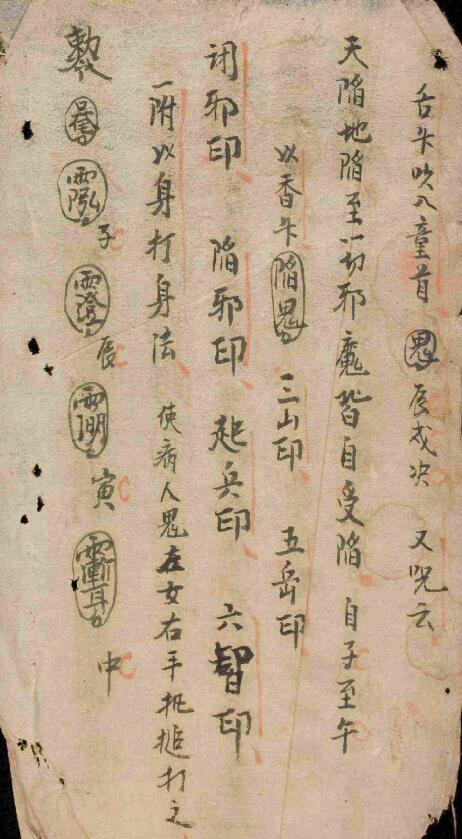 舌书吹入童首 鬼 辰戌决 又咒云
天陷地陷至一切邪魔皆自受陷 自子至午
以香书陷鬼 三山印 五岳印
闭邪印 陷邪印 起兵印 六智印
一附以身打身法 使病人鬼在女右手执槌打之
子 辰 寅 中